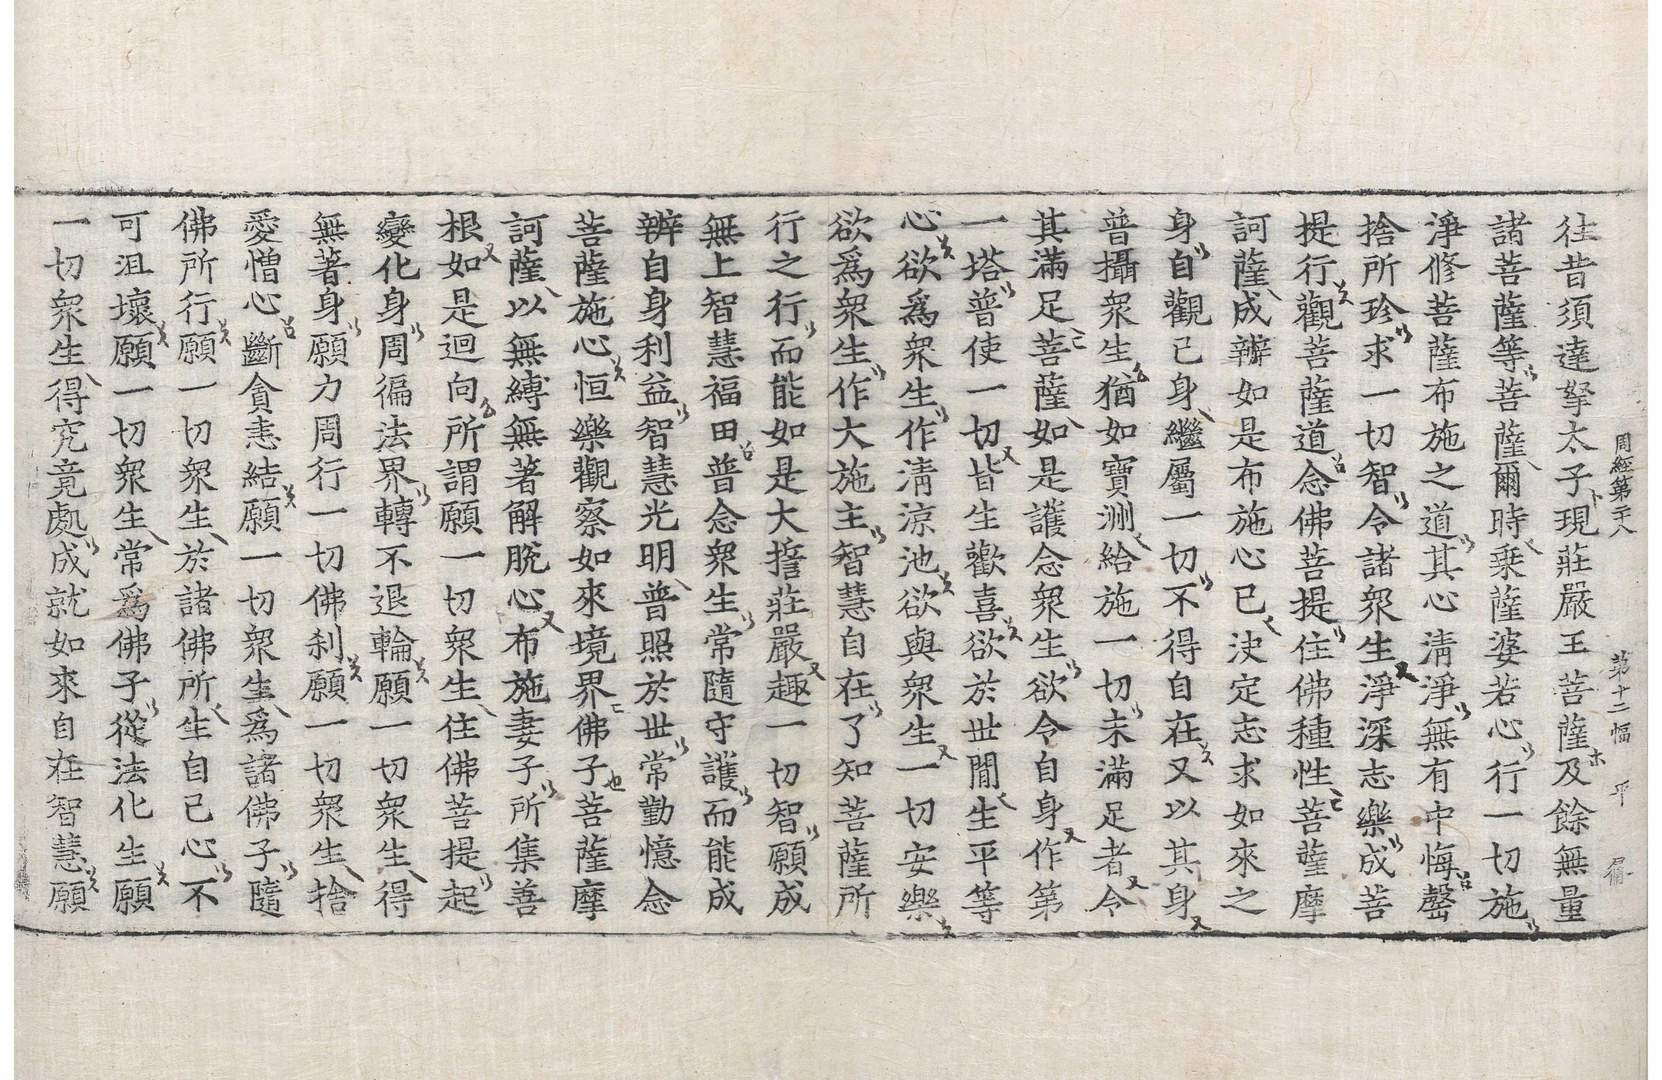 往昔須達拏太子現莊嚴王菩薩及餘無量
諸菩薩等菩薩爾時乗薩婆若心行一切施
淨修菩薩布施之道其心清淨無有中悔罄
捨所珍求一切智令諸衆生淨深志樂成菩
提行觀菩薩道念佛菩提住佛種性菩薩摩
訶薩成辦如是布施心已決定志求如來之
身自觀己身繼屬一切不得自在又以其身
普攝衆生猶如寶洲給施一切未滿足者令
其滿足菩薩如是護念衆生欲令自身作第
一塔普使一切皆生歡喜欲於世間生平等
心欲爲衆生作清涼池欲與衆生一切安樂
欲爲衆生作大施主智慧自在了知菩薩所
行之行而能如是大擔莊嚴趣一切智願成
無上智慧福田普念衆生常隨守護而能成
辨自身利益智慧光明普照於世常勤憶念
菩薩施心恒樂觀察如來境界佛子菩薩摩
訶薩以無縛無著解脫心布施妻子所集善
根如是迴向所謂願一切衆生住佛菩提起
變化身周徧法界轉不退輪願一切衆生得
無著身願力周行一切佛刹願一切衆生捨
愛憎心斷貪恚結願一切衆生爲諸佛子隨
佛所行願一切衆生於諸佛所生自己心不
可沮壞願一切衆生常爲佛子從法化生願
一切衆生得究竟處成就如來自在智慧願